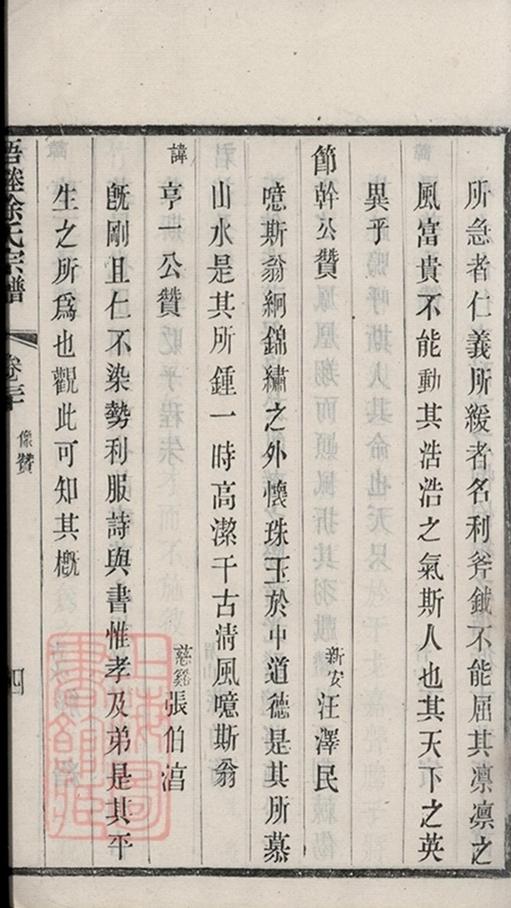 所急者仁義所緩者名利斧鉞不能屈其凛凛之
風富貴不能動其浩浩之氣斯人也其天下之英
異乎
節幹公贊 新安汪澤民
噫斯翁絅錦繡之外懷珠玉於中道德是其所慕
山水是其所鍾一時高潔千古清風噫斯翁
諱亨一公贊 慈谿張伯
旣剛且仁不染勢利服詩與書惟孝及弟是其平
生之所爲也觀此可知其槪
徐氏宗譜 像贊 四
上海圖書館藏